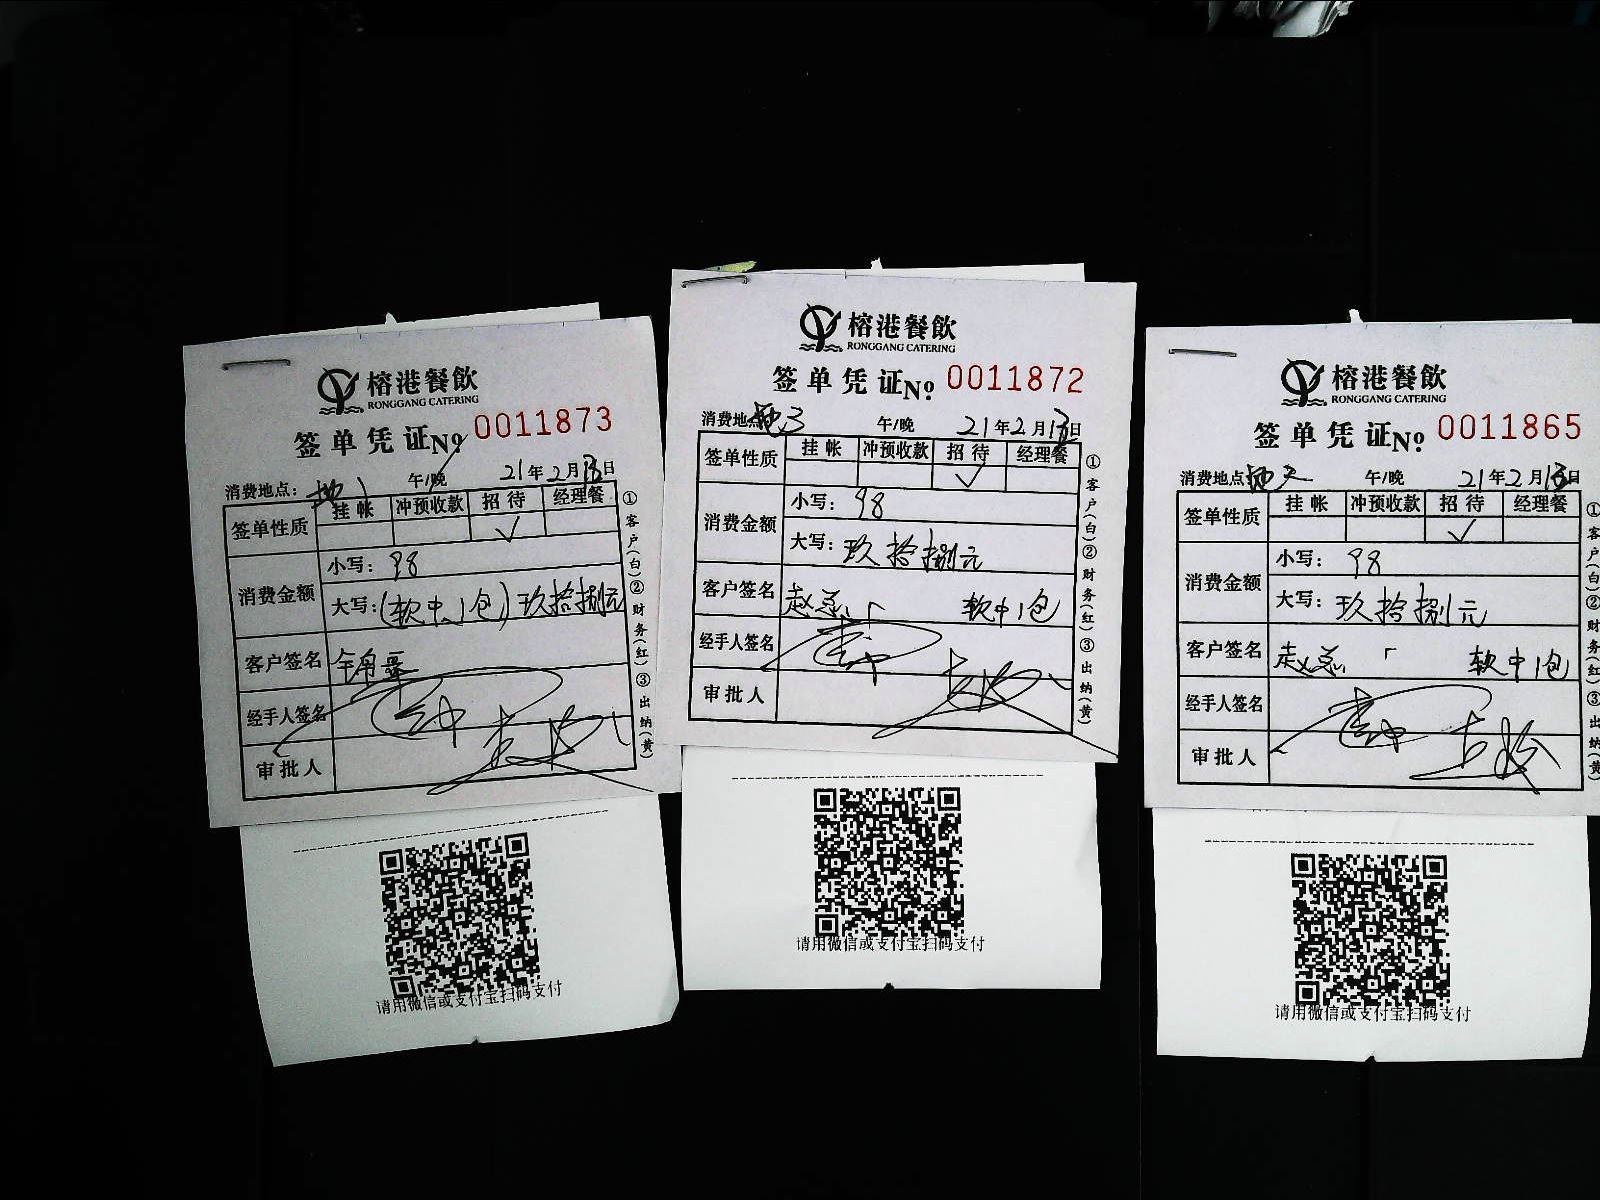 榕港餐飲
RONGGANG CATERING
签单凭证No. 0011873
消费地点： 午/晚 21年2月 日
签单性质 挂帐 冲预收款 招待 经理餐
✓
消费金额 小写：98
大写：(软中1包) 玖拾捌元
客户签名
经手人签名
审批人
①客户(白)②财务(红)③出纳(黄)
请用微信或支付宝扫码支付
榕港餐飲
RONGGANG CATERING
签单凭证No. 0011872
消费地点 午/晚 21年2月 日
签单性质 挂帐 冲预收款 招待 经理餐
✓
消费金额 小写：98
大写：玖拾捌元
客户签名 赵总 软中1包
经手人签名
审批人
①客户(白)②财务(红)③出纳(黄)
请用微信或支付宝扫码支付
榕港餐飲
RONGGANG CATERING
签单凭证No. 0011865
消费地点 午/晚 21年2月 日
签单性质 挂帐 冲预收款 招待 经理餐
✓
消费金额 小写：98
大写：玖拾捌元
客户签名 赵总 软中1包
经手人签名
审批人
①客户(白)②财务(红)③出纳(黄)
请用微信或支付宝扫码支付